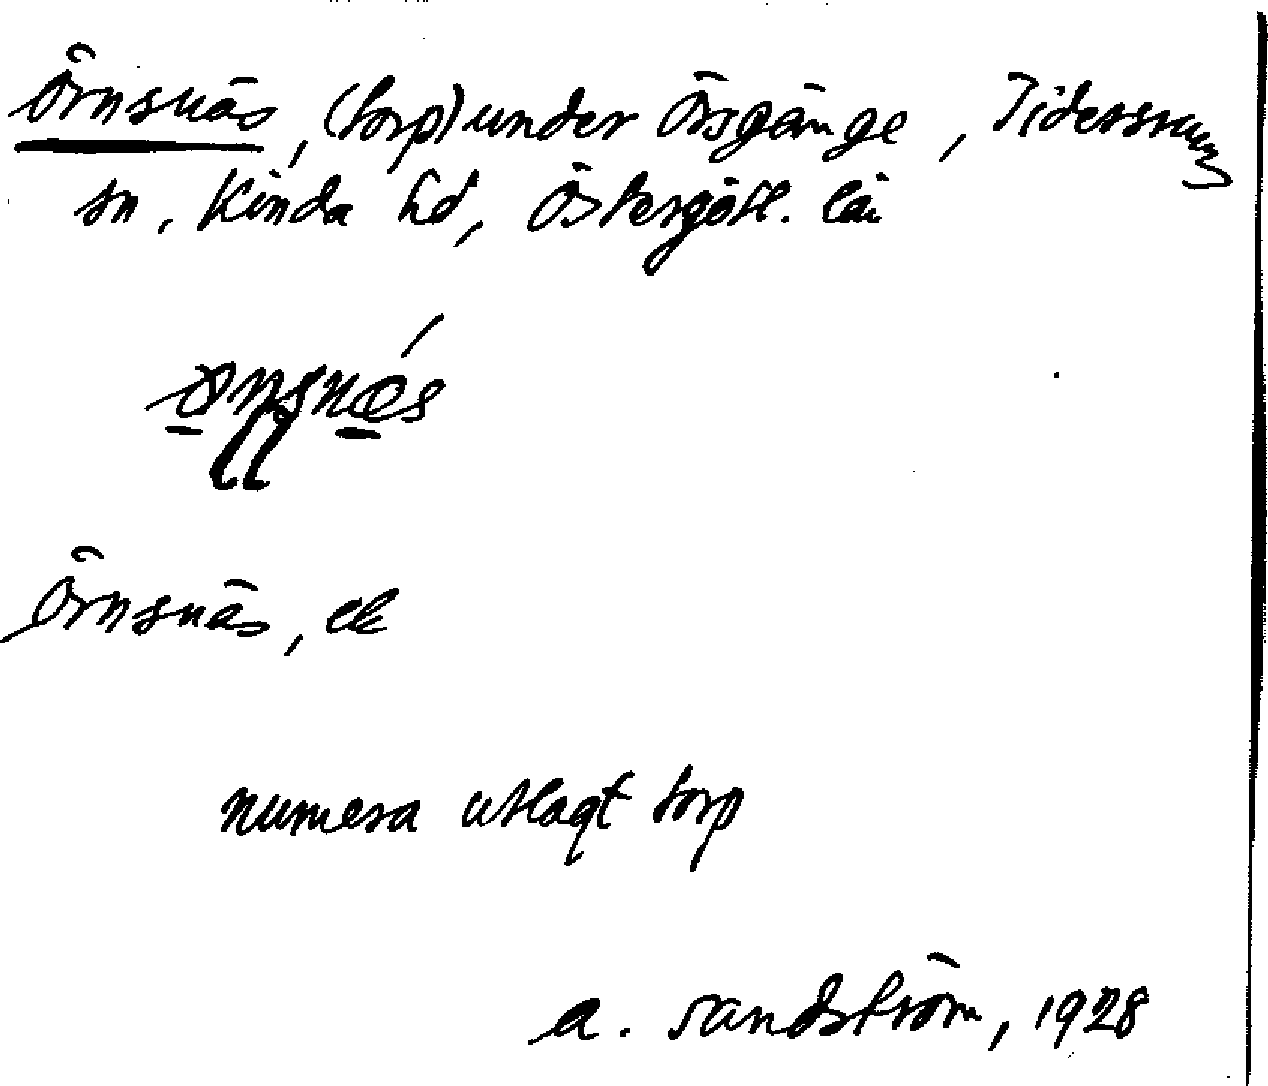 Örnsnäs, (torp) under Örsgänge, Tidersrum
sn, Kinda hd, Östergötl. län
Örnsnäs, ek
numera utlagt torp
A. Sandström, 1928